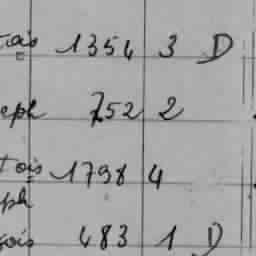 tois 1354 3 D
eph 752 2
tois 1798 4
ph
çois 483 1 D